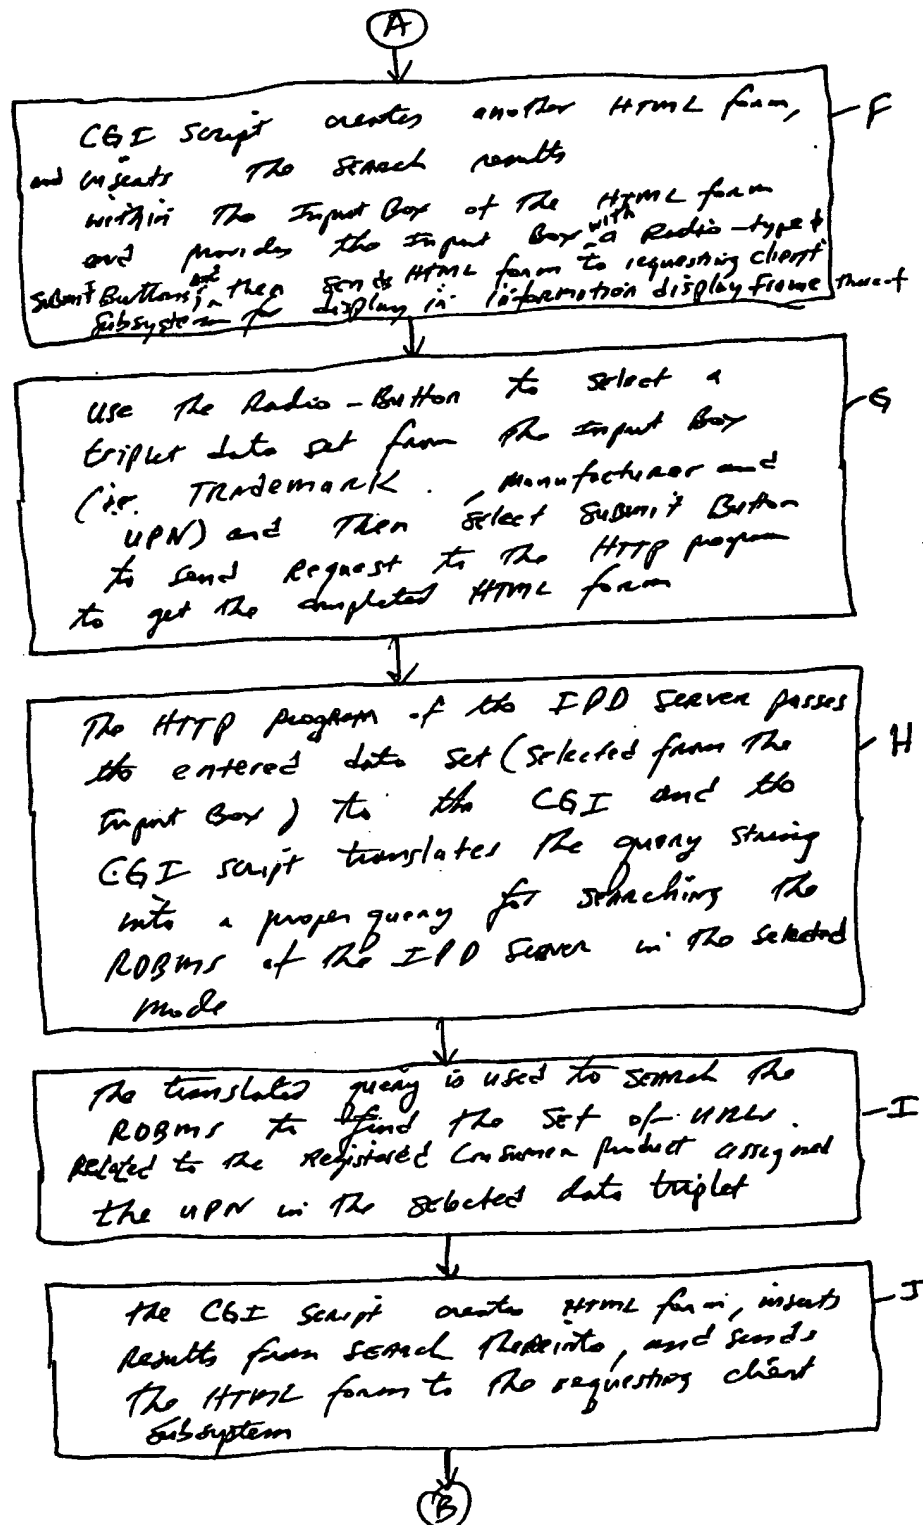 A
CGI Script creates another HTML form,
and inserts the SEARCH results
within the Input Box of the HTML form
and provides the Input Box with a Radio-type &
Submit Buttons, and then sends HTML form to requesting client
subsystem for display in information display frame thereof
F
use the Radio-Button to select a
triplet data set from the Input Box
(i.e. TRademark, Manufacturer and
UPN) and Then select Submit Button
to send Request to the HTTP program
to get the completed HTML form
G
The HTTP program of the IPD Server passes
the entered data set (selected from the
Input Box) to the CGI and the
CGI script translates the query string
into a proper query for searching the
RDBMS of the IPD Server in the selected
mode
H
The translated query is used to SEARCH the
RDBMS to find the set of URLs
Related to the Registered Consumer product assigned
the UPN in the selected data triplet
I
the CGI Script creates HTML form, inserts
Results from SEARCH thereinto, and sends
the HTML form to the requesting client
subsystem
J
B